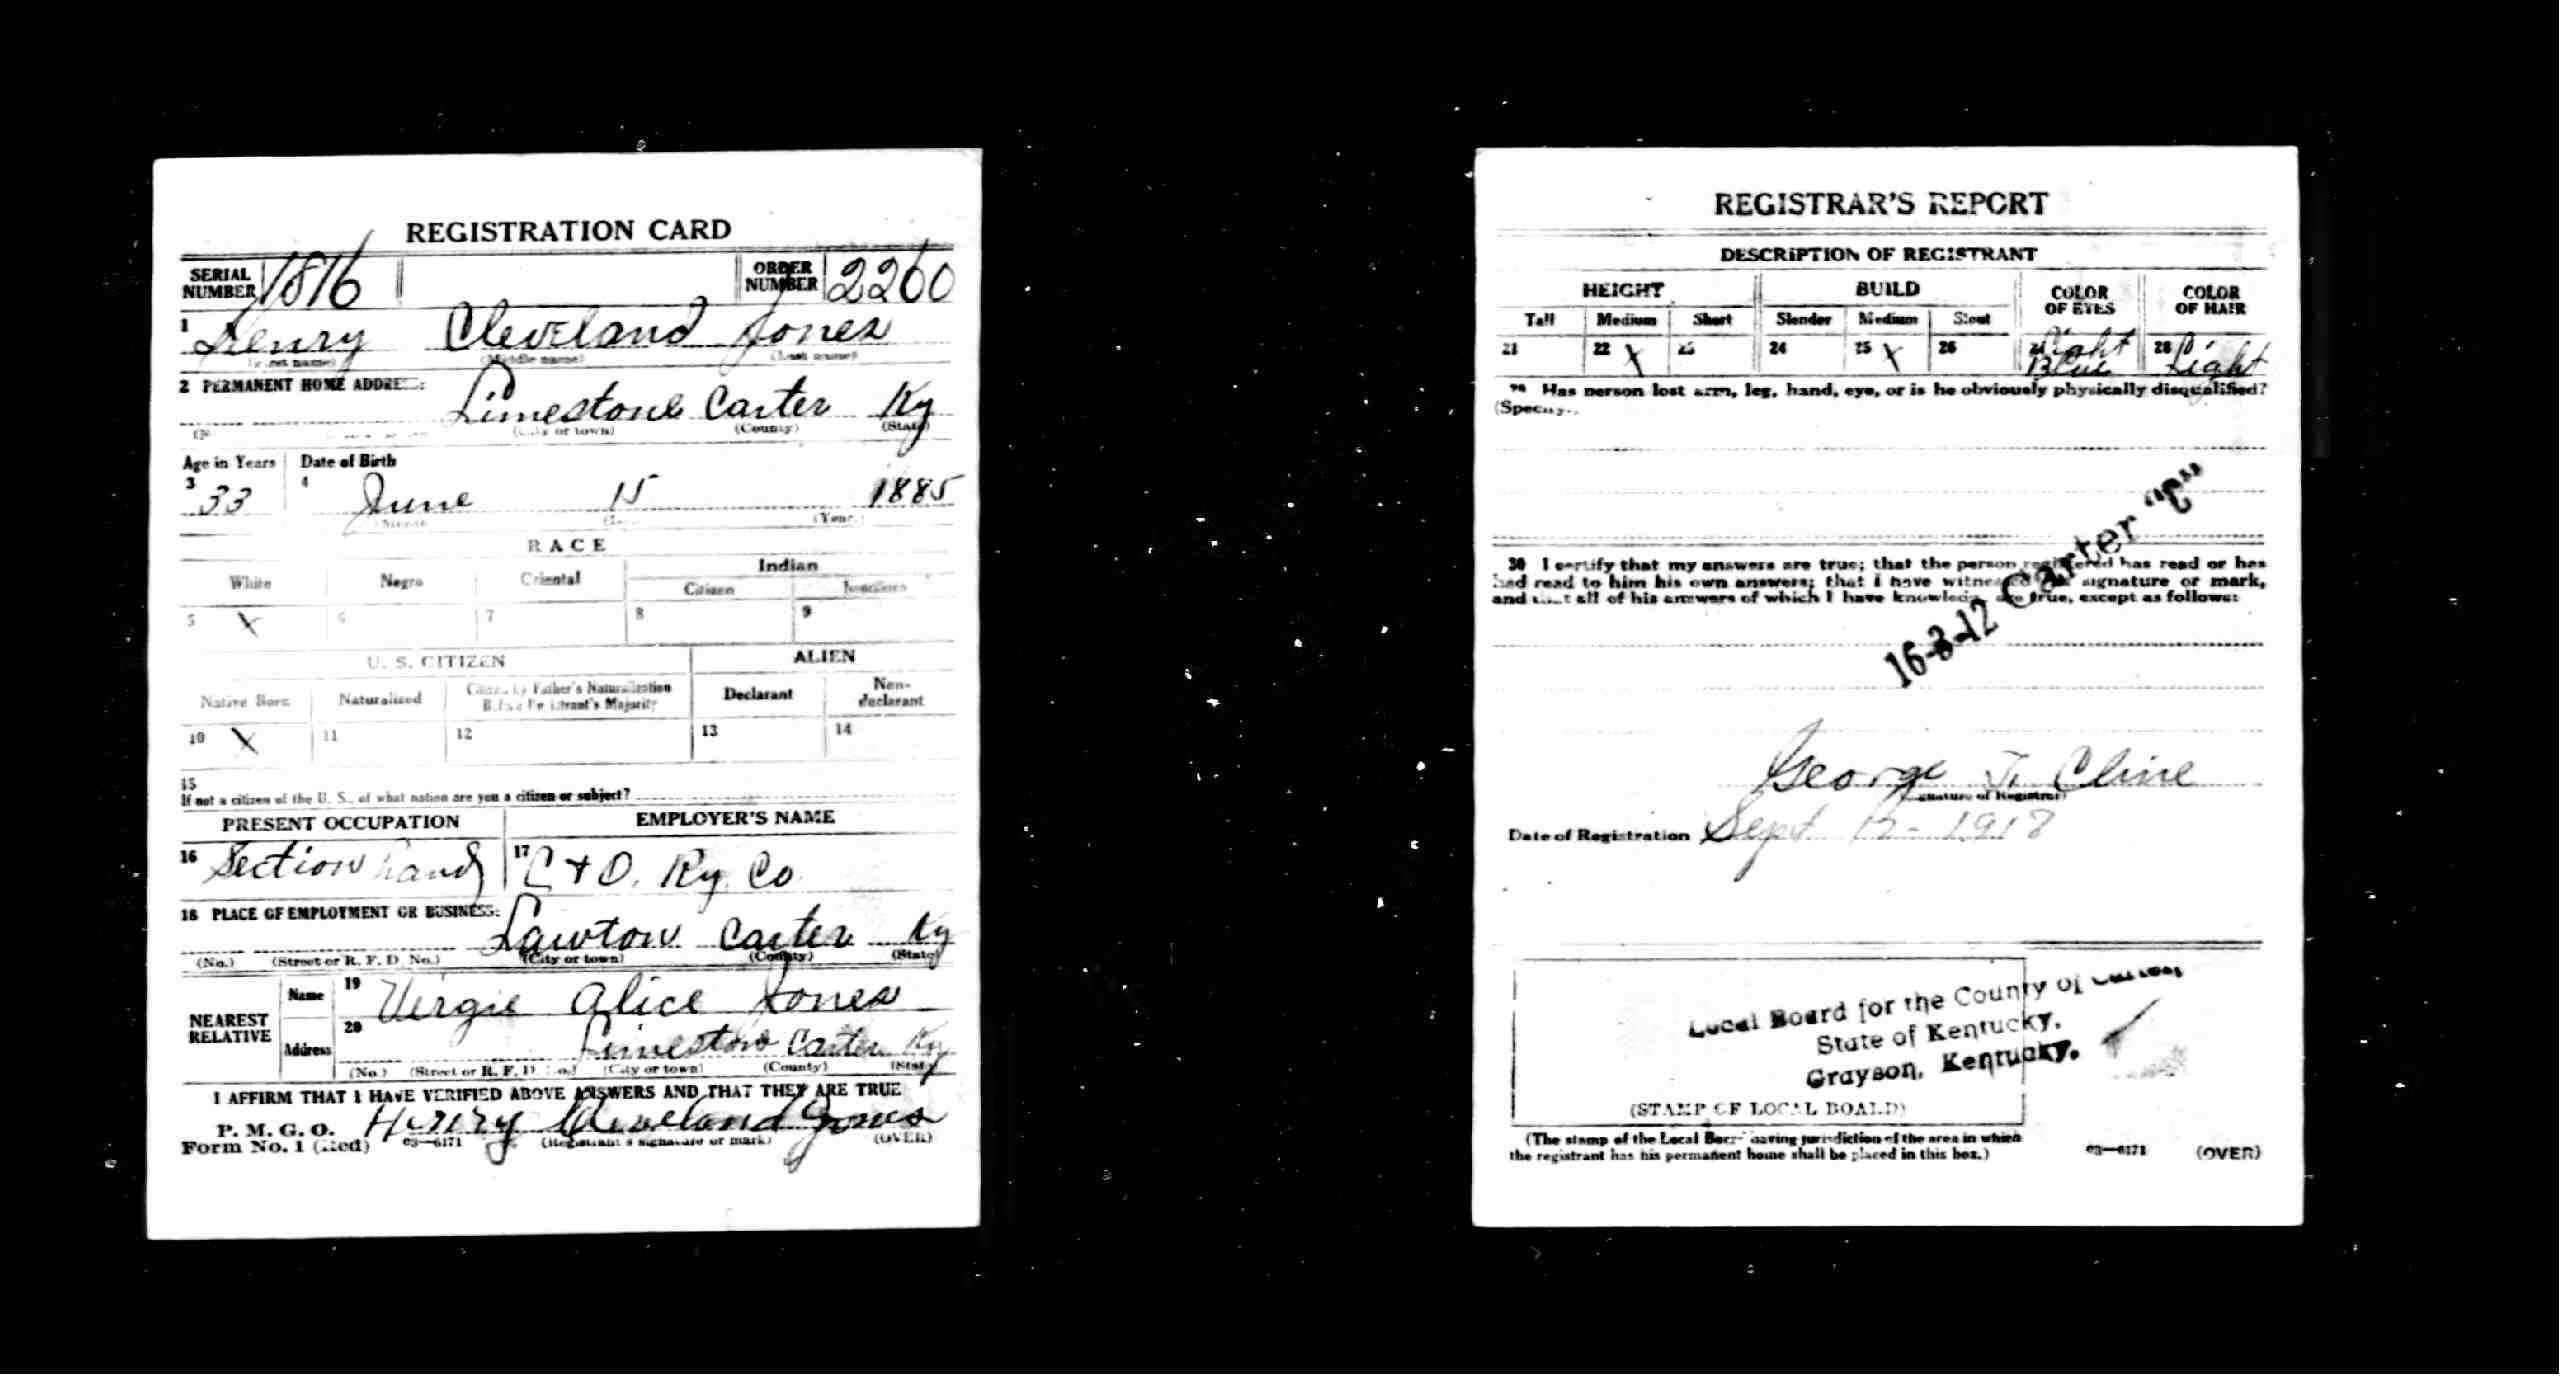 REGISTRATION CARD
SERIAL NUMBER 1816 ORDER NUMBER 2260
1 Henry Cleveland Jones
(Middle name) (Last name)
2 PERMANENT HOME ADDRESS:
Limestone Carter Ky
(City or town) (County) (State)
Age in Years Date of Birth
3 33 4 June 15 1885
(Year)
RACE
White Negro Oriental Indian
Citizen Noncitizen
5 X 6 7 8 9
U. S. CITIZEN ALIEN
Native Born Naturalized Citizen by Father's Naturalization Before Registrant's Majority Declarant Non-declarant
10 X 11 12 13 14
15
If not a citizen of the U. S., of what nation are you a citizen or subject?
PRESENT OCCUPATION EMPLOYER'S NAME
16 Section hand 17 C & O. Ry Co
18 PLACE OF EMPLOYMENT OR BUSINESS:
Lawton Carter Ky
(No.) (Street or R. F. D. No.) (City or town) (County) (State)
NEAREST RELATIVE
Name 19 Virgie Alice Jones
Address 20 Limestone Carter Ky
(No.) (Street or R. F. D. No.) (City or town) (County) (State)
I AFFIRM THAT I HAVE VERIFIED ABOVE ANSWERS AND THAT THEY ARE TRUE
P. M. G. O.
Form No. 1 (Red) 03—6171 Henry Cleveland Jones
(Registrant's signature or mark) (OVER)
REGISTRAR'S REPORT
DESCRIPTION OF REGISTRANT
HEIGHT BUILD COLOR OF EYES COLOR OF HAIR
Tall Medium Short Slender Medium Stout
21 22 X 23 24 25 X 26 27 Light Blue 28 Light
29 Has person lost arm, leg, hand, eye, or is he obviously physically disqualified?
(Specify.)
30 I certify that my answers are true; that the person registered has read or has
had read to him his own answers; that I have witnessed his signature or mark,
and that all of his answers of which I have knowledge are true, except as follows:
16-3-12 Carter "C"
George T. Cline
(Signature of Registrar)
Date of Registration Sept 12 - 1918
Local Board for the County of Carter,
State of Kentucky,
Grayson, Kentucky.
(STAMP OF LOCAL BOARD)
(The stamp of the Local Board having jurisdiction of the area in which
the registrant has his permanent home shall be placed in this box.)
03—6171 (OVER)